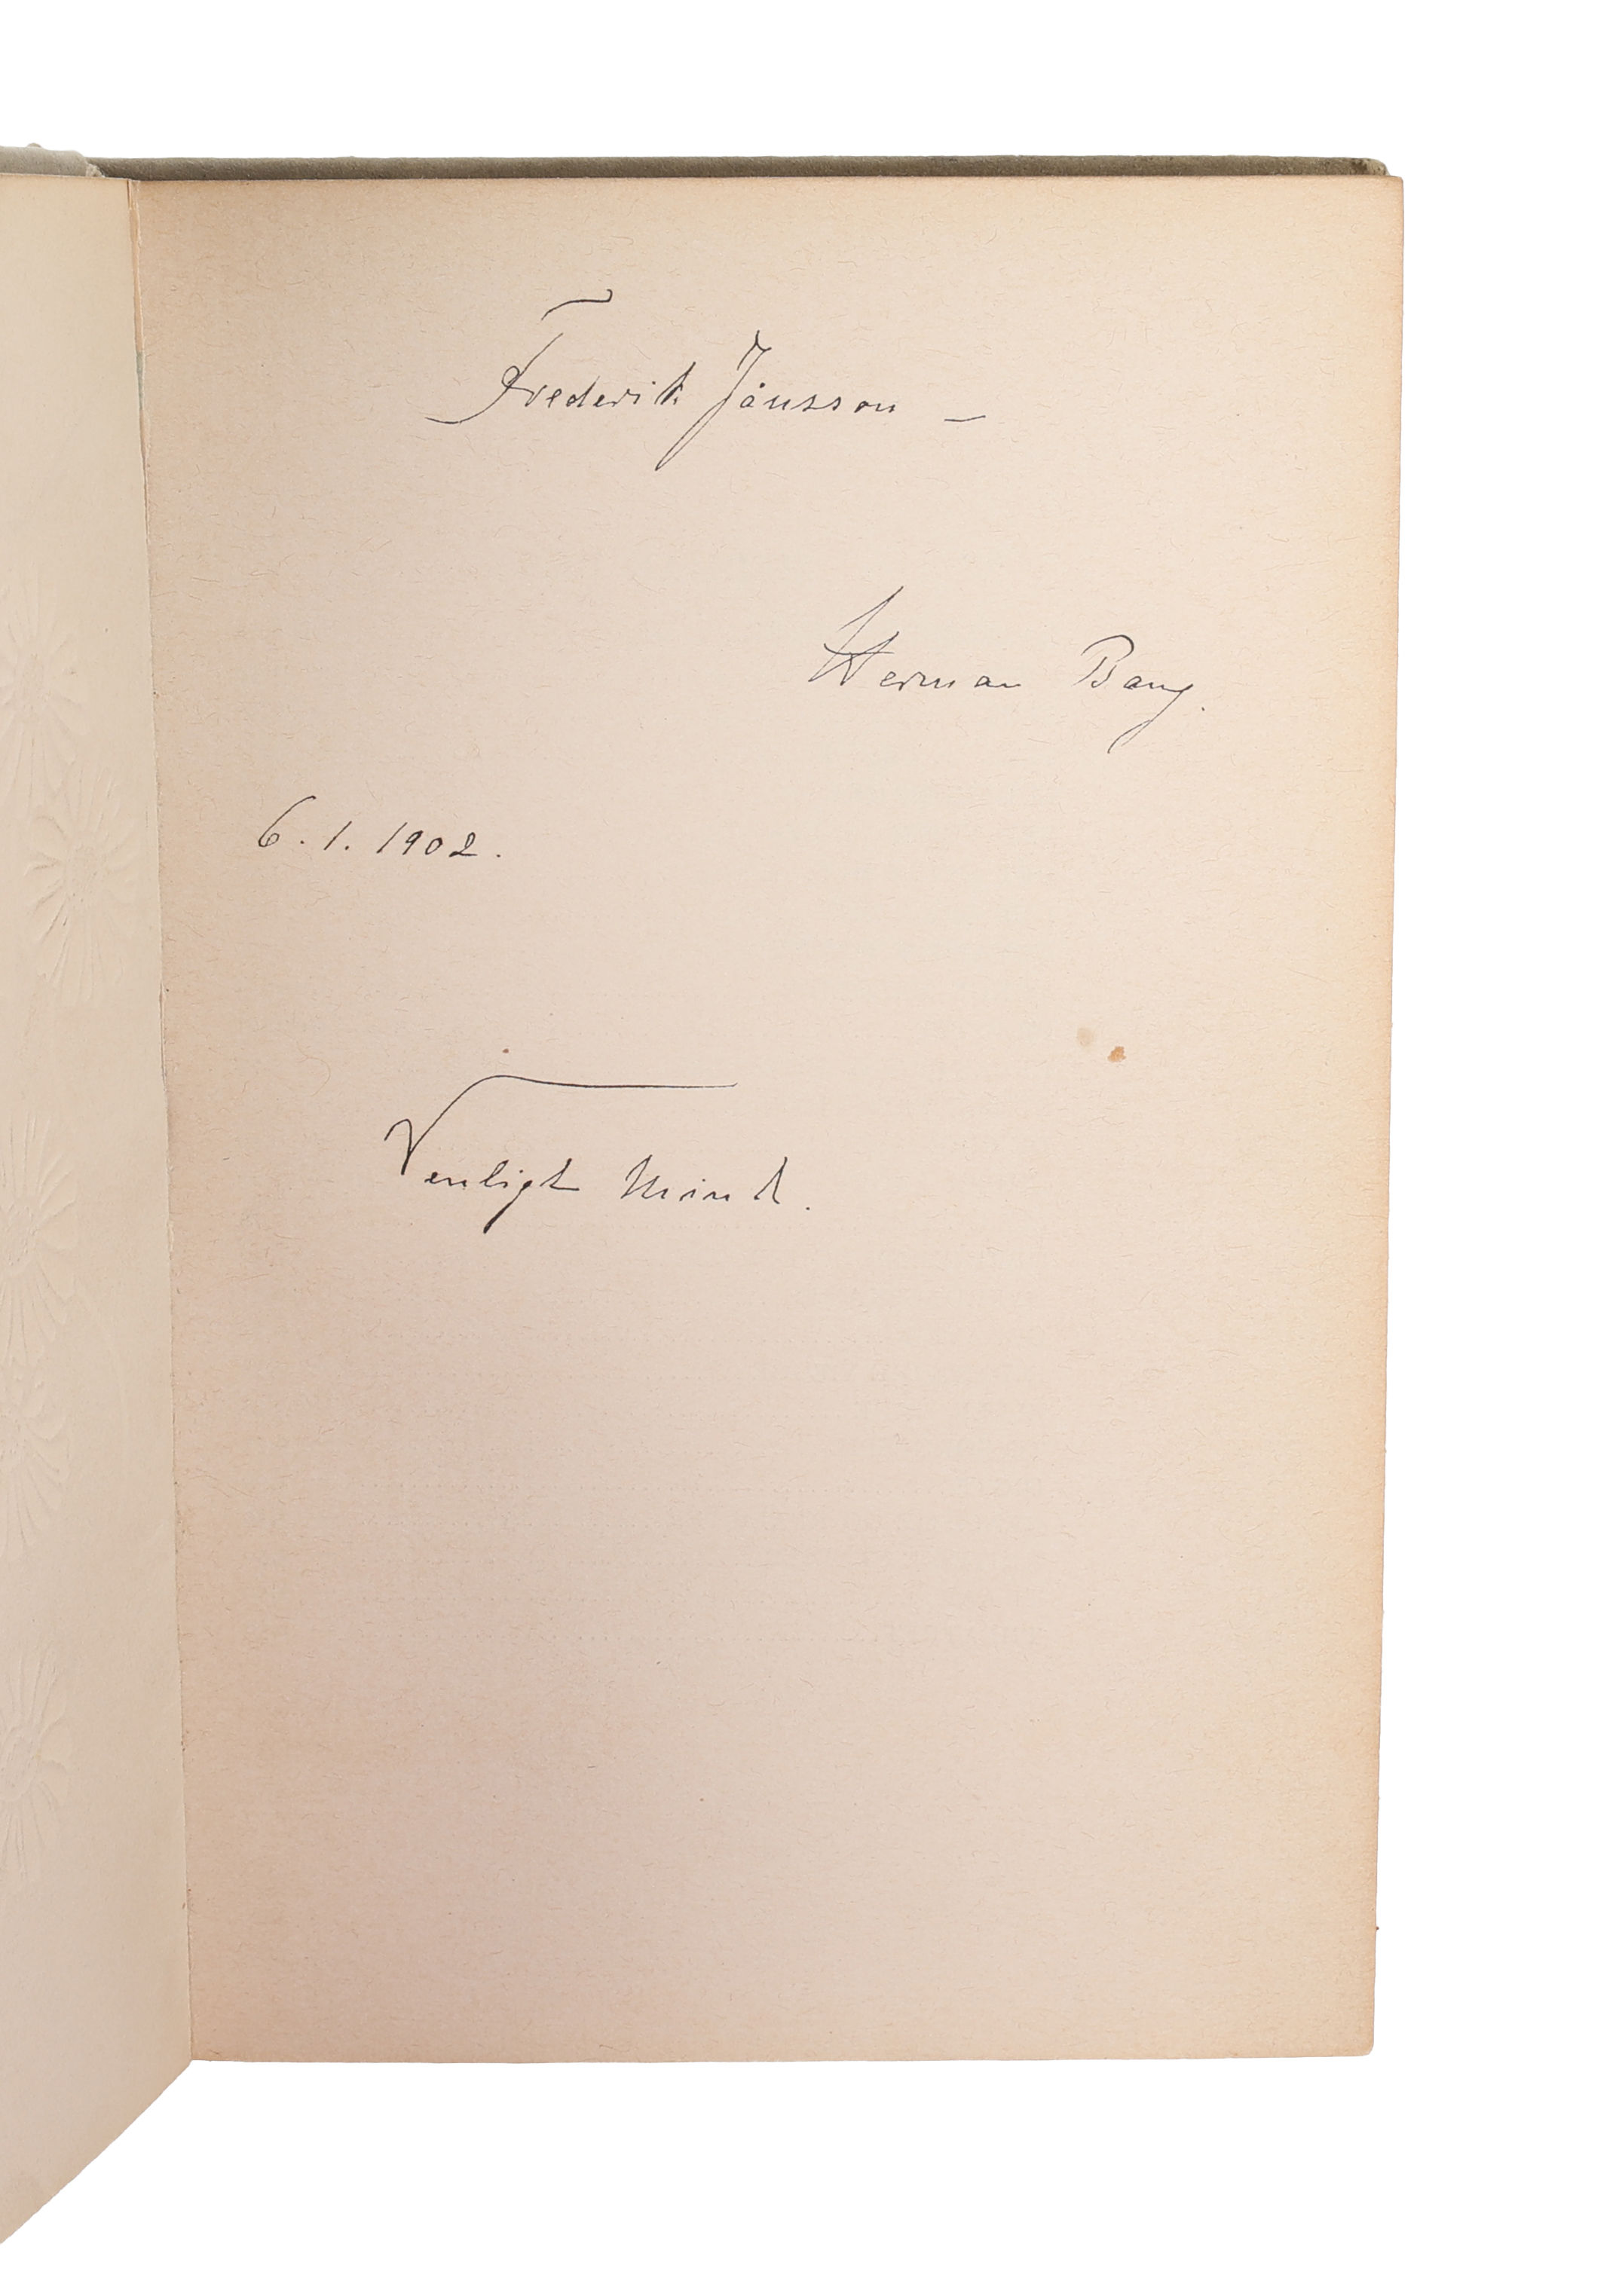 Frederik Jansson —
Herman Bang.
6. 1. 1902.
Venligt Mindt.